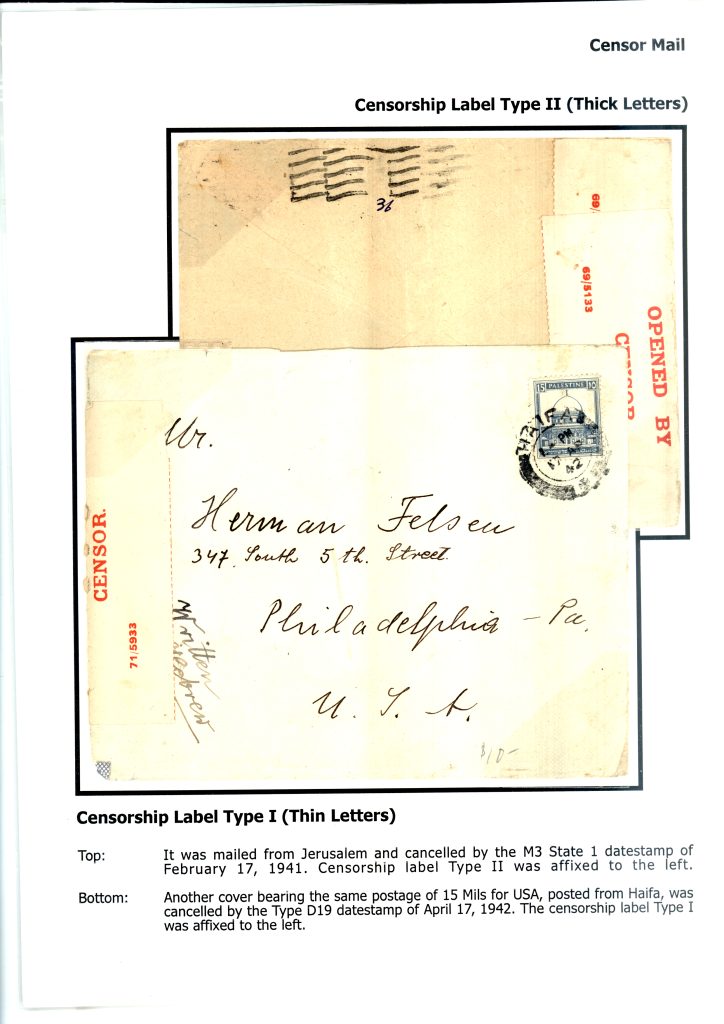 Censor Mail
Censorship Label Type II (Thick Letters)
36
69/
69/5133
OPENED BY
CENSOR
15 PALESTINE ١٥
HAIFA
PM
17 AP
42
Mr.
Herman Felsen
347 South 5 th. Street
Philadelphia - Pa.
U. S. A.
CENSOR.
71/5933
Written
$10-
Censorship Label Type I (Thin Letters)
Top: It was mailed from Jerusalem and cancelled by the M3 State 1 datestamp of
February 17, 1941. Censorship label Type II was affixed to the left.
Bottom: Another cover bearing the same postage of 15 Mils for USA, posted from Haifa, was
cancelled by the Type D19 datestamp of April 17, 1942. The censorship label Type I
was affixed to the left.